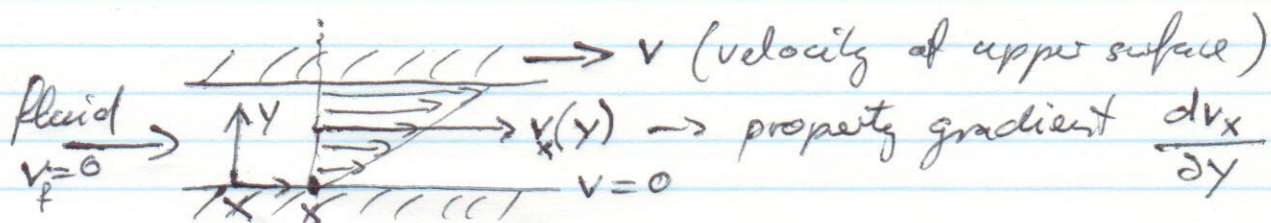 v (velocity of upper surface)
fluid y vₓ(y) → property gradient dvₓ/∂y
v_f=0 v=0
x x